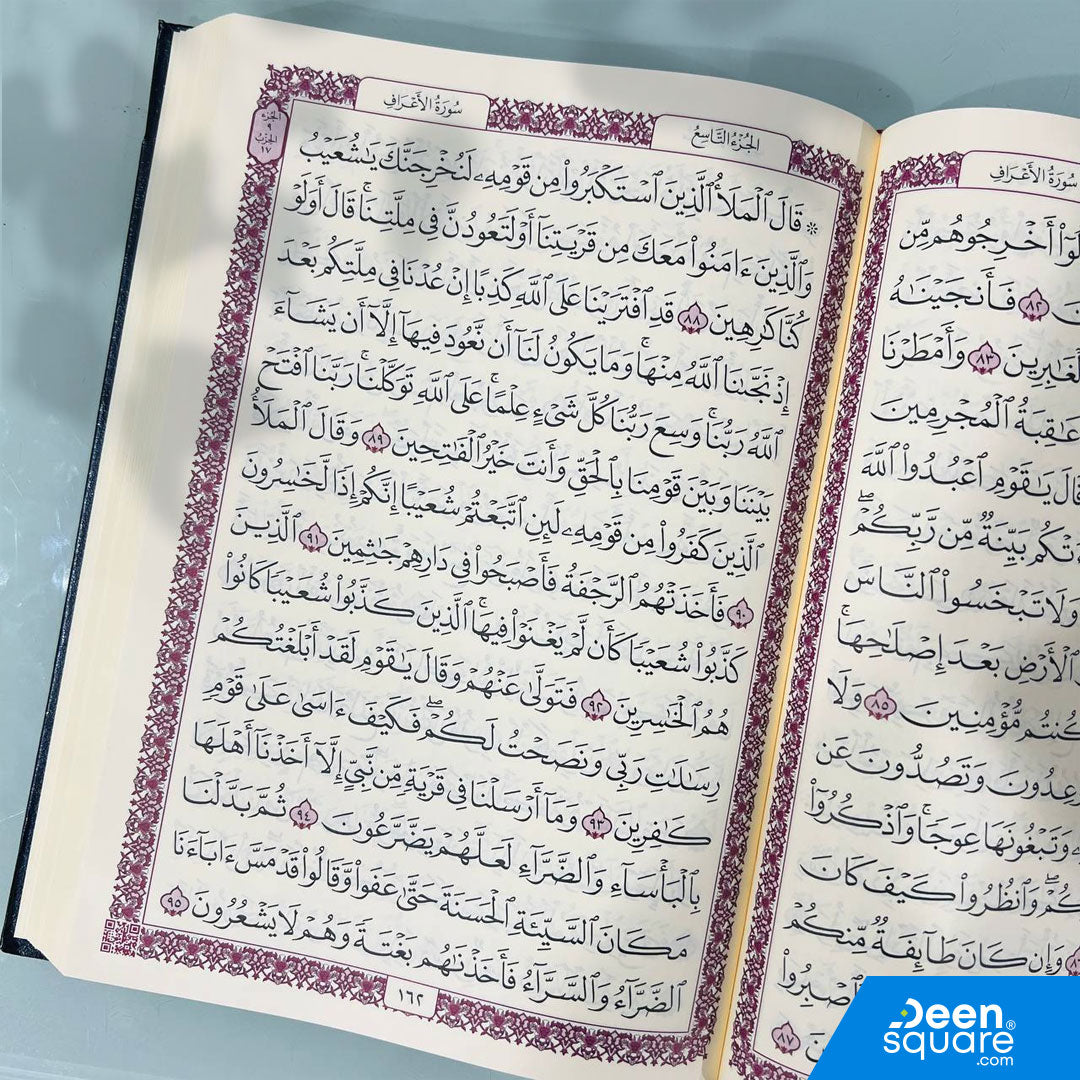 سُورَةُ الأَعْرَافِ
الجُزْءُ التَّاسِعُ
الجُزْء
٩
الحِزْب
١٧
۞ قَالَ ٱلْمَلَأُ ٱلَّذِينَ ٱسْتَكْبَرُوا۟ مِن قَوْمِهِۦ لَنُخْرِجَنَّكَ يَـٰشُعَيْبُ
وَٱلَّذِينَ ءَامَنُوا۟ مَعَكَ مِن قَرْيَتِنَآ أَوْ لَتَعُودُنَّ فِى مِلَّتِنَا ۚ قَالَ أَوَلَوْ
كُنَّا كَـٰرِهِينَ ٨٨ قَدِ ٱفْتَرَيْنَا عَلَى ٱللَّهِ كَذِبًا إِنْ عُدْنَا فِى مِلَّتِكُم بَعْدَ
إِذْ نَجَّىٰنَا ٱللَّهُ مِنْهَا ۚ وَمَا يَكُونُ لَنَآ أَن نَّعُودَ فِيهَآ إِلَّآ أَن يَشَآءَ
ٱللَّهُ رَبُّنَا ۚ وَسِعَ رَبُّنَا كُلَّ شَىْءٍ عِلْمًا ۚ عَلَى ٱللَّهِ تَوَكَّلْنَا ۚ رَبَّنَا ٱفْتَحْ
بَيْنَنَا وَبَيْنَ قَوْمِنَا بِٱلْحَقِّ وَأَنتَ خَيْرُ ٱلْفَـٰتِحِينَ ٨٩ وَقَالَ ٱلْمَلَأُ
ٱلَّذِينَ كَفَرُوا۟ مِن قَوْمِهِۦ لَئِنِ ٱتَّبَعْتُمْ شُعَيْبًا إِنَّكُمْ إِذًا لَّخَـٰسِرُونَ
٩٠ فَأَخَذَتْهُمُ ٱلرَّجْفَةُ فَأَصْبَحُوا۟ فِى دَارِهِمْ جَـٰثِمِينَ ٩١ ٱلَّذِينَ
كَذَّبُوا۟ شُعَيْبًا كَأَن لَّمْ يَغْنَوْا۟ فِيهَا ۚ ٱلَّذِينَ كَذَّبُوا۟ شُعَيْبًا كَانُوا۟
هُمُ ٱلْخَـٰسِرِينَ ٩٢ فَتَوَلَّىٰ عَنْهُمْ وَقَالَ يَـٰقَوْمِ لَقَدْ أَبْلَغْتُكُمْ
رِسَـٰلَـٰتِ رَبِّى وَنَصَحْتُ لَكُمْ ۖ فَكَيْفَ ءَاسَىٰ عَلَىٰ قَوْمٍ
كَـٰفِرِينَ ٩٣ وَمَآ أَرْسَلْنَا فِى قَرْيَةٍ مِّن نَّبِىٍّ إِلَّآ أَخَذْنَآ أَهْلَهَا
بِٱلْبَأْسَآءِ وَٱلضَّرَّآءِ لَعَلَّهُمْ يَضَّرَّعُونَ ٩٤ ثُمَّ بَدَّلْنَا
مَكَانَ ٱلسَّيِّئَةِ ٱلْحَسَنَةَ حَتَّىٰ عَفَوا۟ وَّقَالُوا۟ قَدْ مَسَّ ءَابَآءَنَا
ٱلضَّرَّآءُ وَٱلسَّرَّآءُ فَأَخَذْنَـٰهُم بَغْتَةً وَهُمْ لَا يَشْعُرُونَ ٩٥
١٦٢
سُورَةُ الأَعْرَافِ
أَخْرِجُوهُم مِّن
٨٢ فَأَنجَيْنَـٰهُ
ٱلْغَـٰبِرِينَ ٨٣ وَأَمْطَرْنَا
عَـٰقِبَةُ ٱلْمُجْرِمِينَ
يَـٰقَوْمِ ٱعْبُدُوا۟ ٱللَّهَ
بَيِّنَةٌ مِّن رَّبِّكُمْ ۖ
وَلَا تَبْخَسُوا۟ ٱلنَّاسَ
ٱلْأَرْضِ بَعْدَ إِصْلَـٰحِهَا ۚ
كُنتُم مُّؤْمِنِينَ ٨٥ وَلَا
وَتَصُدُّونَ عَن
وَتَبْغُونَهَا عِوَجًا ۚ وَٱذْكُرُوٓا۟
وَٱنظُرُوا۟ كَيْفَ كَانَ
وَإِن كَانَ طَآئِفَةٌ مِّنكُم
٨٧
Deen
square
.com
®